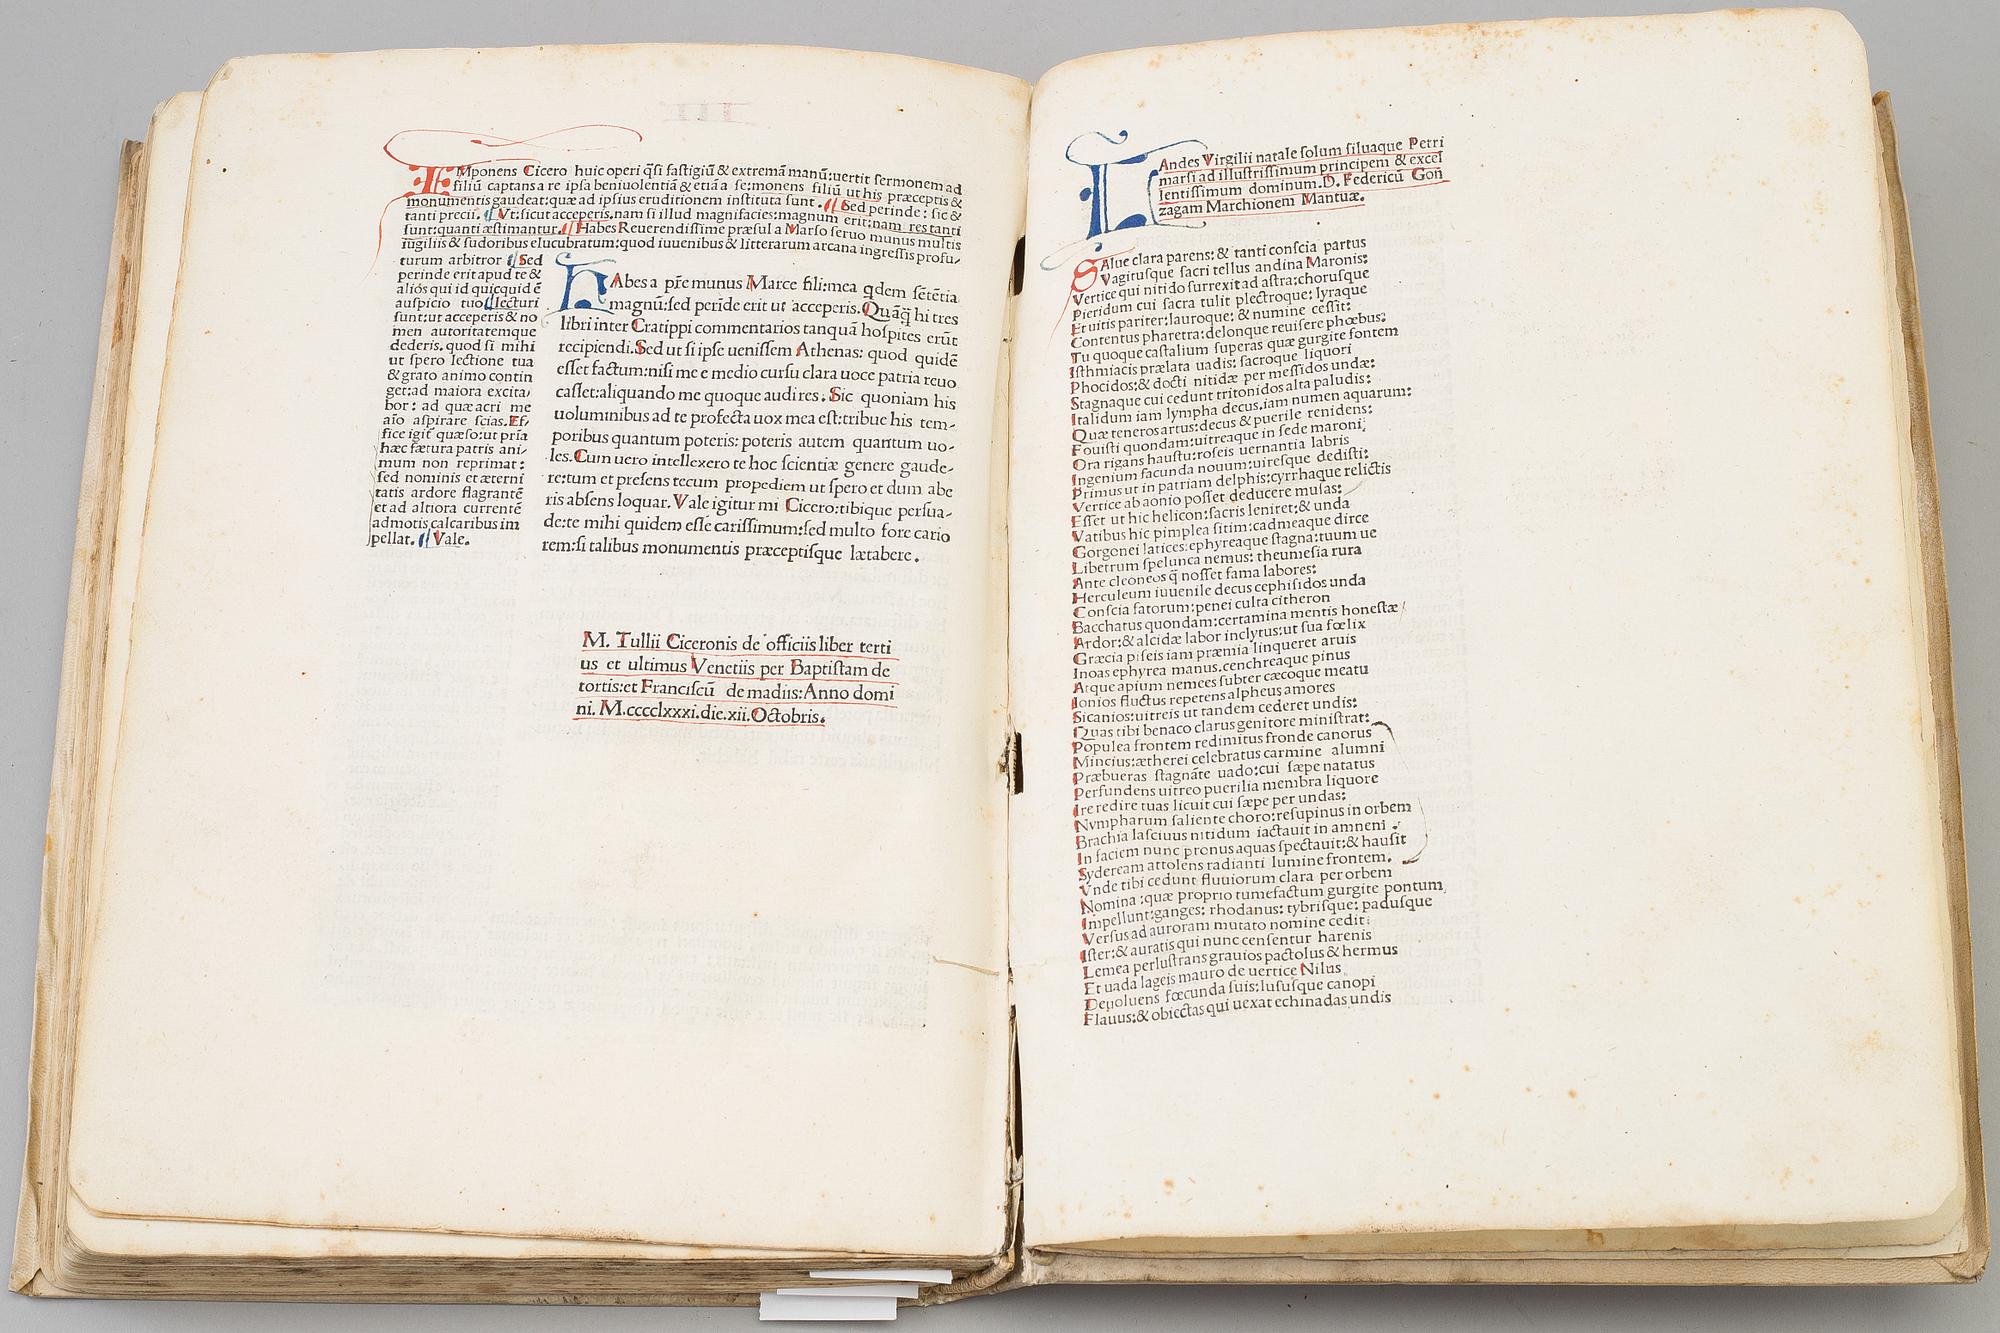 IMponens Cicero huic operi q̃si fastigiũ & extremã manũ:uertit sermonem ad
filiũ captans a re ipsa beniuolentiã & etiã a se:monens filiũ ut his præceptis &
monumentis gaudeat:quæ ad ipsius eruditionem instituta sunt. Sed perinde: sic &
tanti precii. Vt:sicut acceperis.nam si illud magnifacies:magnum erit:nam res tanti
sunt:quanti æstimantur. Habes Reuerendissime præsul a Marso seruo munus multis
iugiliis & sudoribus elucubratum:quod iuuenibus & litterarum arcana ingressis profu-
turum arbitror Sed
perinde erit apud te &
alios qui id quicquid ẽ
auspicio tuo lecturi
sunt:ut acceperis & no
men autoritatemque
dederis. quod si mihi
ut spero lectione tua
& grato animo contin
get:ad maiora excita-
bor: ad quæ acri me
aĩo aspirare scias. Ef-
fice igit̃ quæso:ut pr̃ia
hæc fætura patris ani-
mum non reprimat:
sed nominis et æterni
tatis ardore flagrantẽ
et ad altiora currentẽ
admotis calcaribus im
pellat. Vale.
HAbes a pr̃e munus Marce fili:mea qdem sẽtẽtia
magnũ:sed perĩde erit ut acceperis. Quãq̃ hi tres
libri inter Cratippi commentarios tanquã hospites erũt
recipiendi. Sed ut si ipse uenissem Athenas: quod quidẽ
esset factum:nisi me e medio cursu clara uoce patria reuo
casset:aliquando me quoque audires. Sic quoniam his
uoluminibus ad te profecta uox mea est:tribue his tem-
poribus quantum poteris: poteris autem quantum uo-
les. Cum uero intellexero te hoc scientiæ genere gaude-
re:tum et presens tecum propediem ut spero et dum abe
ris absens loquar. Vale igitur mi Cicero:tibique persua-
de:te mihi quidem esse carissimum:sed multo fore cario
rem:si talibus monumentis præceptisque lætabere.
M. Tullii Ciceronis de officiis liber terti
us et ultimus Venetiis per Baptistam de
tortis:et Franciscũ de madiis:Anno domi
ni. M.cccclxxxi.die.xii.Octobris.
LAndes Virgilii natale solum siluaque Petri
marsi ad illustrissimum principem & excel
lentissimum dominum.D. Federicũ Gon̄
zagam Marchionem Mantuæ.
SAlue clara parens: & tanti conscia partus
Vagitusque sacri tellus andina Maronis:
Vertice qui nitido surrexit ad astra:chorusque
Pieridum cui sacra tulit plectroque: lyraque
Et uitis pariter:lauroque: & numine cessit:
Contentus pharetra:delonque reuisere phœbus:
Tu quoque castalium superas quæ gurgite fontem
Isthmiacis prælata uadis: sacroque liquori
Phocidos:& docti nitidæ per messidos undæ:
Stagnaque cui cedunt tritonidos alta paludis:
Italidum iam lympha decus.iam numen aquarum:
Quæ teneros artus:decus & puerile renidens:
Fouisti quondam:uitreaque in sede maroni;
Ora rigans haustu:roseis uernantia labris
Ingenium facunda nouum:uiresque dedisti:
Primus ut in patriam delphis:cyrrhaque relictis
Vertice ab aonio posset deducere musas:
Esset ut hic helicon:sacris leniret:& unda
Vatibus hic pimplea sitim:cadmeaque dirce
Gorgonei latices:ephyreaque stagna:tuum ue
Libetrum spelunca nemus: theumesia rura
Ante cleoneos q̃ nosset fama labores:
Herculeum iuuenile decus cephisidos unda
Conscia fatorum:penei culta citheron
Bacchatus quondam:certamina mentis honestæ
Ardor:& alcidæ labor inclytus:ut sua fœlix
Græcia piseis iam præmia linqueret aruis
Inoas ephyrea manus.cenchreaque pinus
Atque apium nemees subter cæcoque meatu
Ionios fluctus repetens alpheus amores
Sicanios:uitreis ut tandem cederet undis:
Quas tibi benaco clarus genitore ministrat:
Populea frontem redimitus fronde canorus
Mincius:ætherei celebratus carmine alumni
Præbueras stagnãte uado:cui sæpe natatus
Perfundens uitreo puerilia membra liquore
Ire redire tuas licuit cui sæpe per undas:
Nympharum saliente choro:resupinus in orbem
Brachia lasciuus nitidum iactauit in amneni
In faciem nunc pronus aquas spectauit:& hausit
Sydeream attolens radianti lumine frontem.
Vnde tibi cedunt fluuiorum clara per orbem
Nomina :quæ proprio tumefactum gurgite pontum
Impellunt:ganges: rhodanus: tybrisque: padusque
Versus ad auroram mutato nomine cedit:
Ister:& auratis qui nunc censentur harenis
Lemea perlustrans grauios pactolus & hermus
Et uada lageis mauro de uertice Nilus
Deuoluens fœcunda suis:lususque canopi
Flauus:& obiectas qui uexat echinadas undis